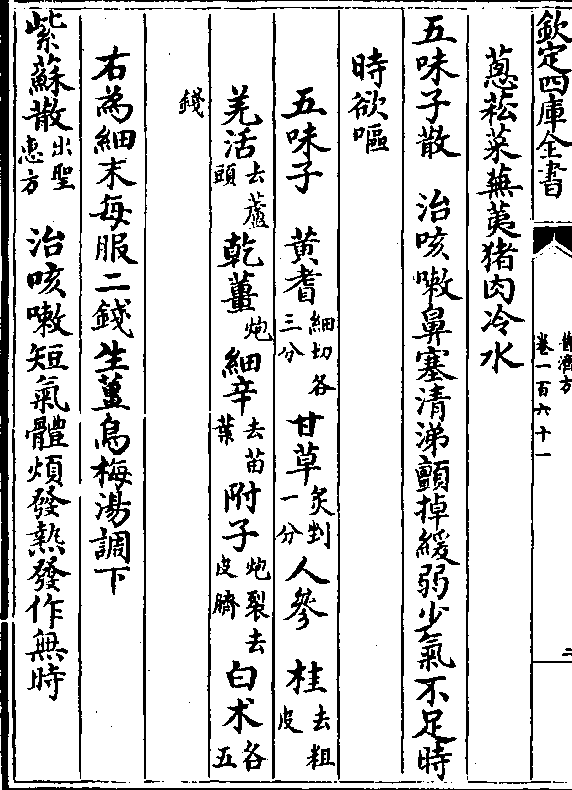 欽定四庫全書
普濟方
卷一百六十一
二
蔥菘菜蕪荑猪肉冷水
五味子散　治咳嗽鼻塞清涕顫掉緩弱少氣不足時
時欲嘔
五味子　黄耆細切各三分　甘草炙剉一分　人參　桂去粗皮
羌活去蘆頭　乾薑炮　細辛去苗葉　附子炮裂去皮臍　白术各五
錢
右為細末每服二錢生薑烏梅湯調下
紫蘇散出聖惠方　治咳嗽短氣體煩發熱發作無時